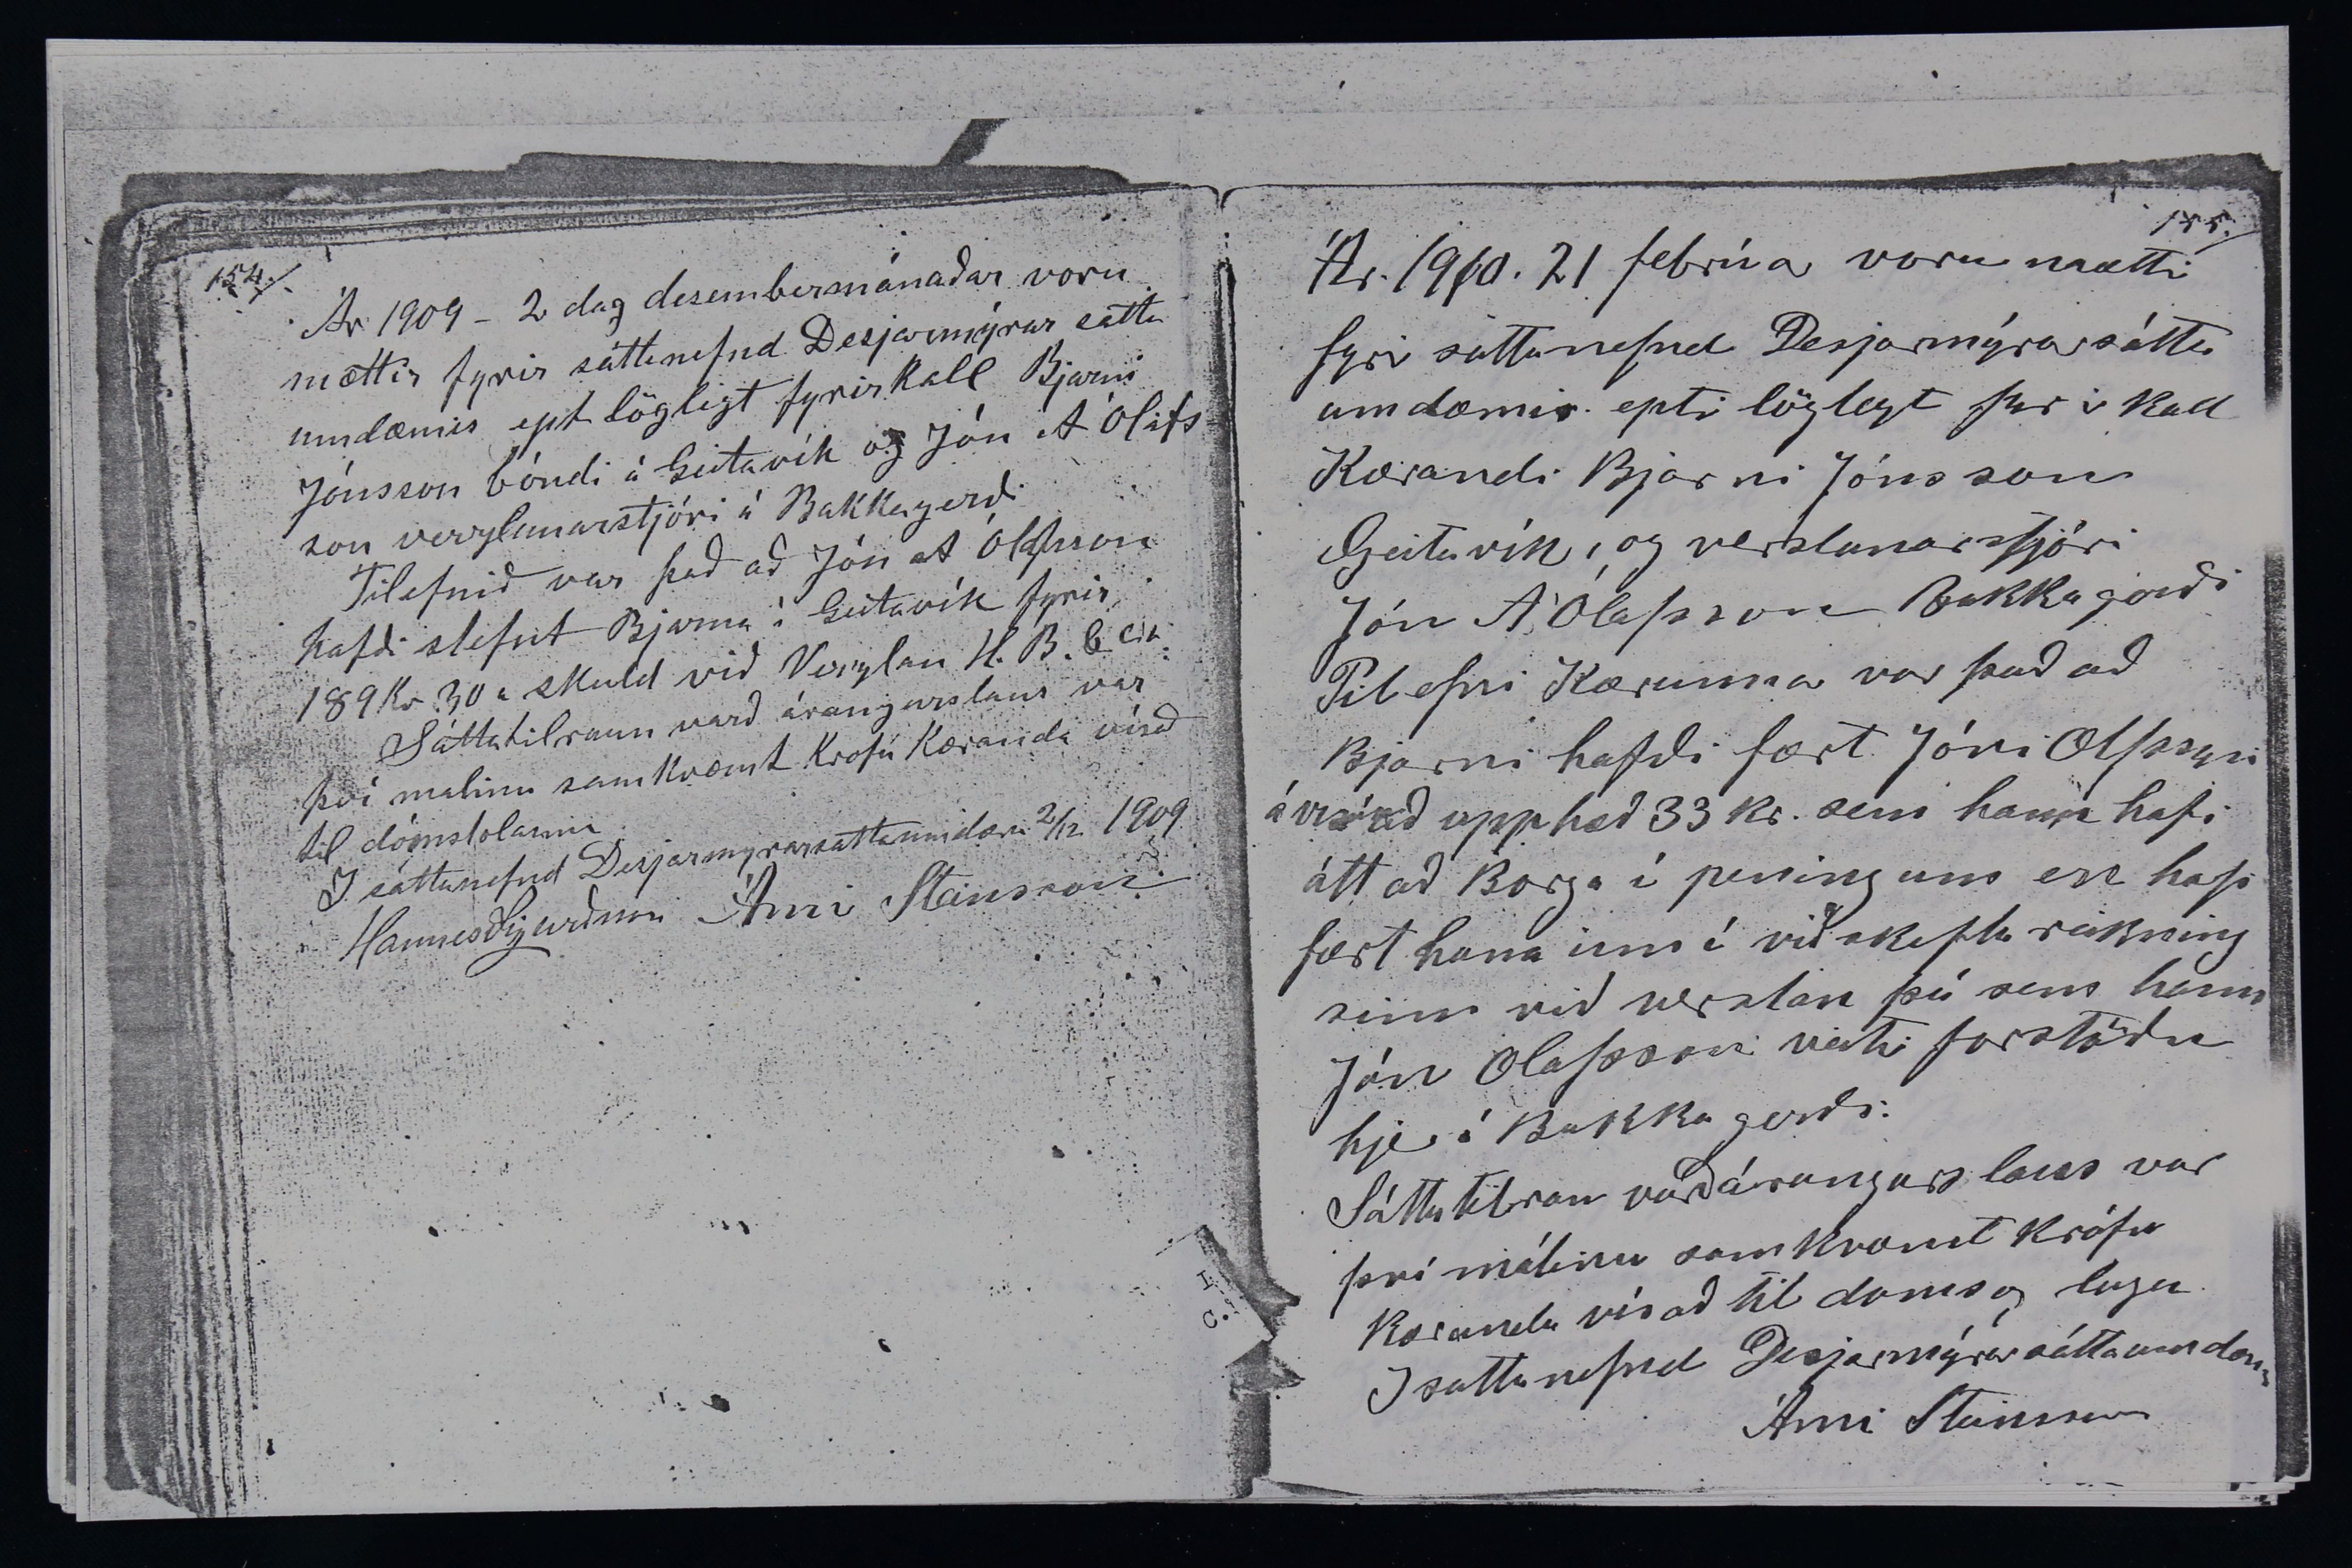 154.
Ár 1909 - 2 dag desembermánaðar voru
mættir fyrir sáttanefnd Desjarmýrar sátta
umdæmis ept löglegt fyrirkall Bjarni
Jónsson bóndi á Geitavík og Jón A Ólafs
son verzlunarstjóri á Bakkagerði
Tilefnið var það að Jón A Ólafsson
hafði stefnt Bjarna í Geitavík fyrir
189 Kr 30 a skuld við Verzlan H. B. &
Sáttatilraun varð árangurslaus var
því malinu samkvæmt Krofu Kæranda vísað
til dómstolanna
I sáttanefnd Desjarmyrarsattaumdæmi 2/12 1909
Hannes Sigurdsson Árni Steinsson
155.
Ár. 1910. 21 febrúa voru mætti
fyri sáttanefnd Desjarmýrarsátta
umdæmis. epti löglegt firikall
Kærandi Bjarni Jónsson
Geitavík, og verslunarstjóri
Jón A Ólafsson Bakkagerði
Tilefni Kærunna var það að
Bjarni hafði fært Jóni Olfssyni
ávísað upphæð 33 Kr. sem hann hafi
átt að Borga í peningum en hafi
fært hana inn í viðskefta reikning
sinn við verslan þá sem hann
Jón Olafsson veiti forstöðu
hjer á Bakkagerði.
Sáttatilraun varð árangurslaus var
því málinu samkvæmt Krófu
Kæranda vísað til doms og laga
I sattanefnd Desjarmýrarsáttaumdæmi
Árni Steinsson
I
C.